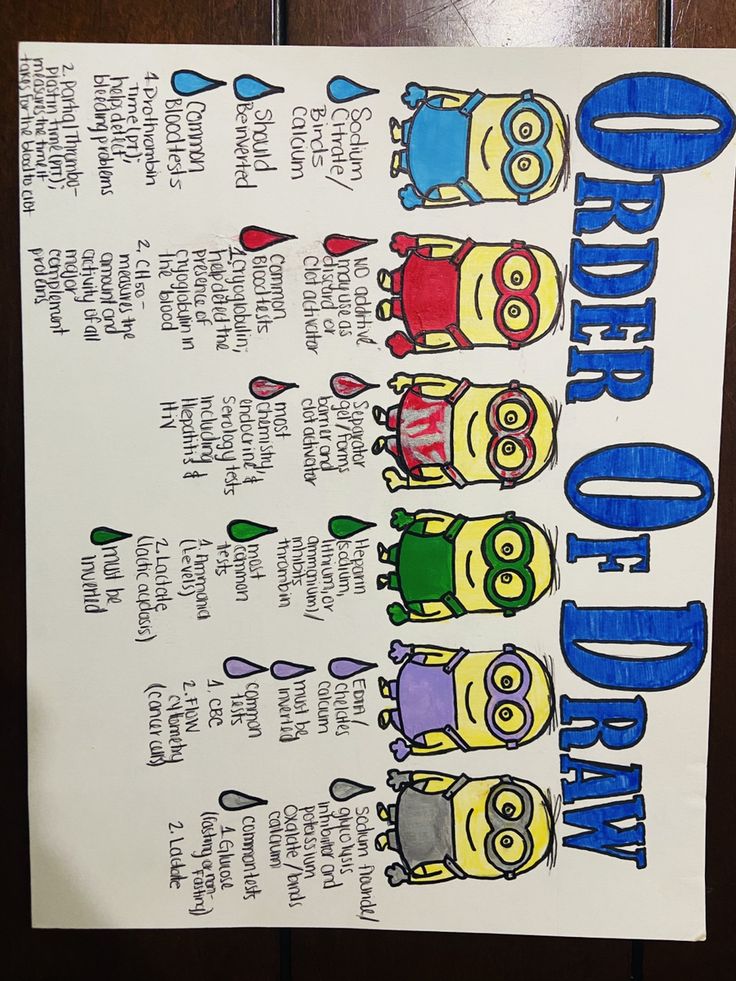 ORDER OF DRAW
Sodium
Citrate/
Binds
Calcium
Should
Be inverted
Common
Blood tests
1. Prothrombin
Time (PT);
help detect
bleeding problems
2. Partial Thrombo-
plastin time (PTT);
measures the time it
takes for the blood to clot
NO additive,
may use as
discard or
Clot activator
Common
Blood tests
1. cryoglobulin;
help detect the
presence of
cryoglobulin in
the blood
2. CH50-
measures the
amount and
activity of all
major
complement
proteins
Separator
gel/forms
barrier and
clot activator
most
chemistry,
endocrine &
serology tests
including
Hepatitis &
HIV
Heparin
(sodium,
lithium, or
ammonium)/
inhibits
thrombin
most
common
tests
1. Ammonia
(Levels)
2. Lactate
(lactic acidosis)
must be
inverted
EDTA/
chelates
calcium
must be
inverted
common
tests
1. CBC
2. Flow
cytometry
(cancer cells)
Sodium flouride/
glycolysis
inhibitor and
potassium
Oxalate/binds
calcium
common tests
1. Glucose
(fasting or non-
fasting)
2. Lactate